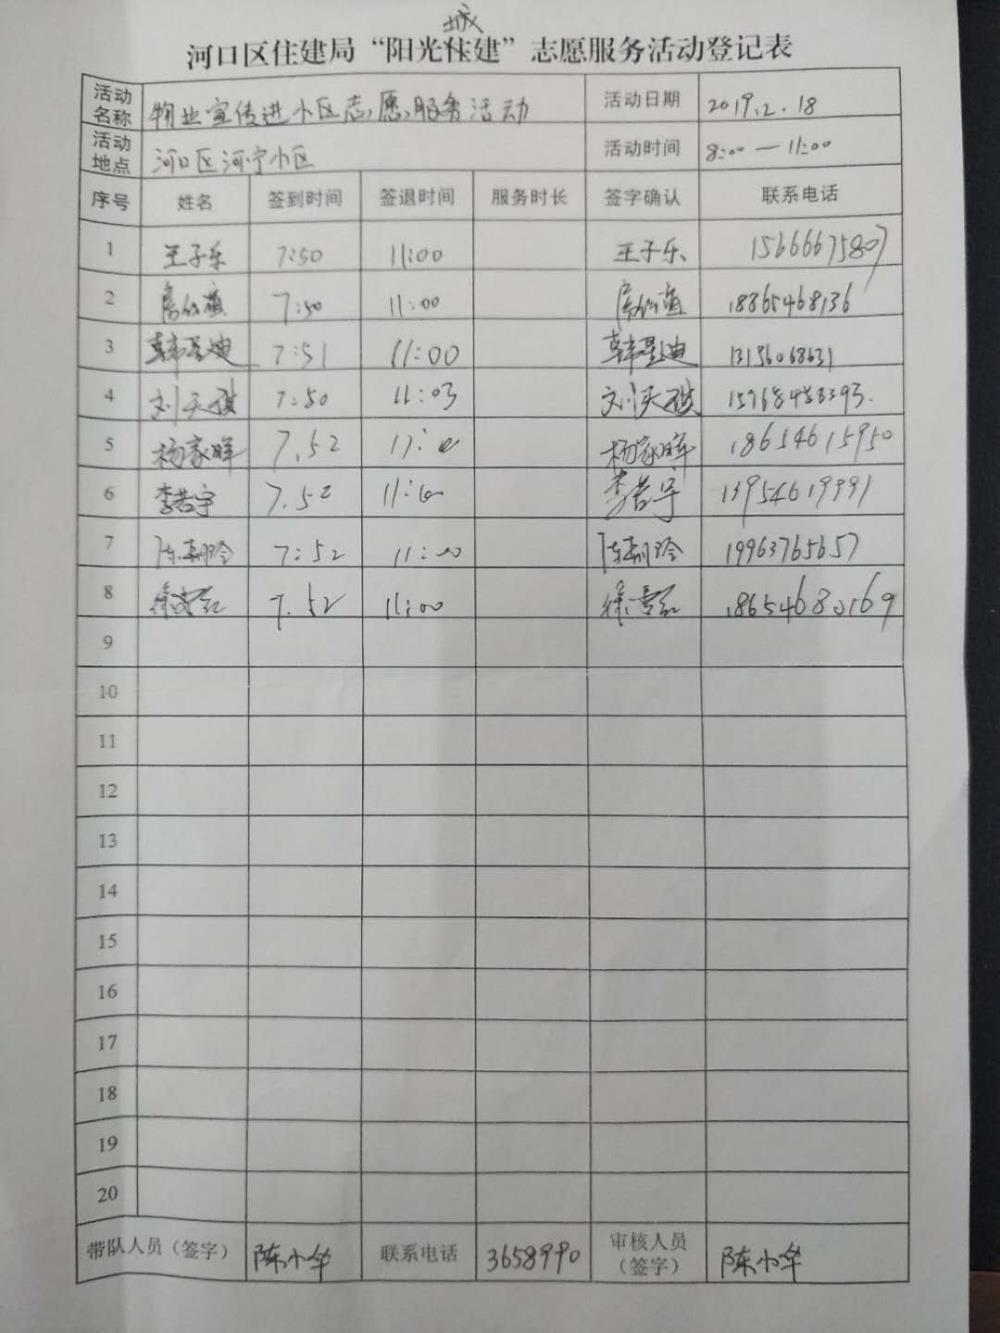 城
河口区住建局“阳光住建”志愿服务活动登记表
活动名称 物业宣传进小区志愿服务活动 活动日期 2019.2.18
活动地点 河口区河宁小区 活动时间 8:00—11:00
序号 姓名 签到时间 签退时间 服务时长 签字确认 联系电话
1 王子乐 7:50 11:00 王子乐 15666675807
2 7:50 11:00 18865468136
3 韩星迪 7:51 11:00 韩星迪 13156068631
4 刘天祺 7:50 11:03 刘天祺
5 杨家晖 7.52 杨家晖 18654615950
6 李若宇 7.52 11:00 李若宇 13954619991
7 7:52 11:00 19963765657
8 7.52 11:00 18654680169
9
10
11
12
13
14
15
16
17
18
19
20
带队人员（签字） 陈小华 联系电话 3658990 审核人员（签字） 陈小华